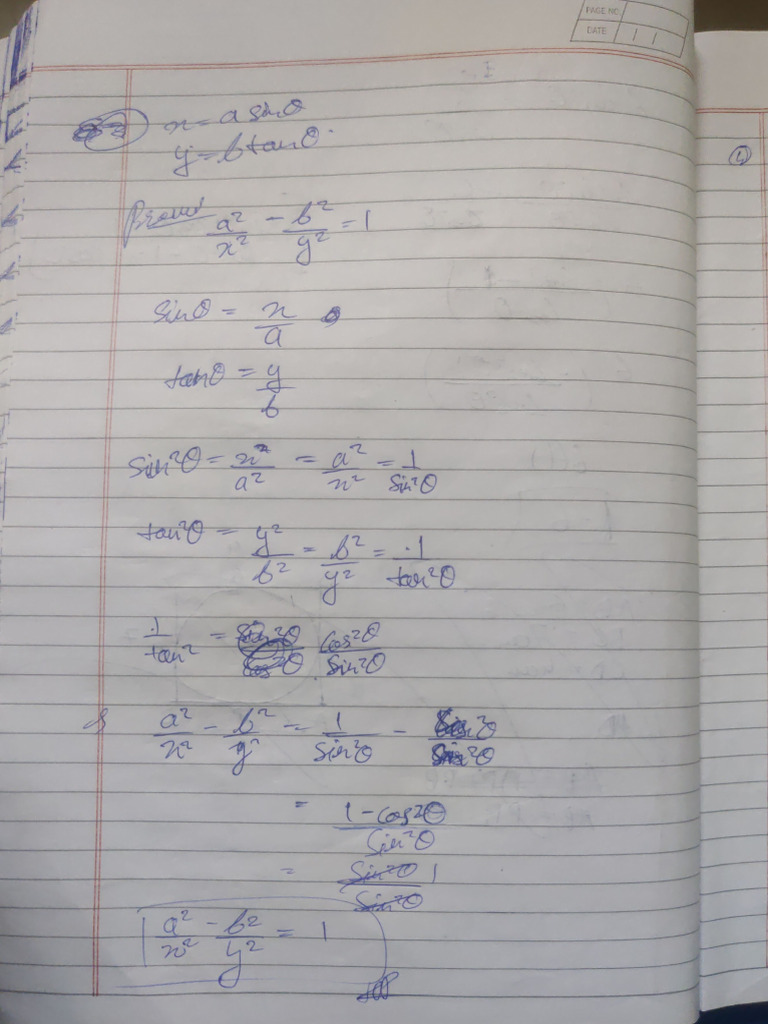 PAGE NO.
DATE / /
x = a sinθ
y = b tanθ
a²/x² - b²/y² = 1
sinθ = x/a
tanθ = y/b
sin²θ = x²/a² = a²/x² = 1/sin²θ
tan²θ = y²/b² = b²/y² = 1/tan²θ
1/tan² = cos²θ/sin²θ
a²/x² - b²/y² = 1/sin²θ -
= 1-cos²θ/sin²θ
= sin²θ/sin²θ 1
a²/x² - b²/y² = 1